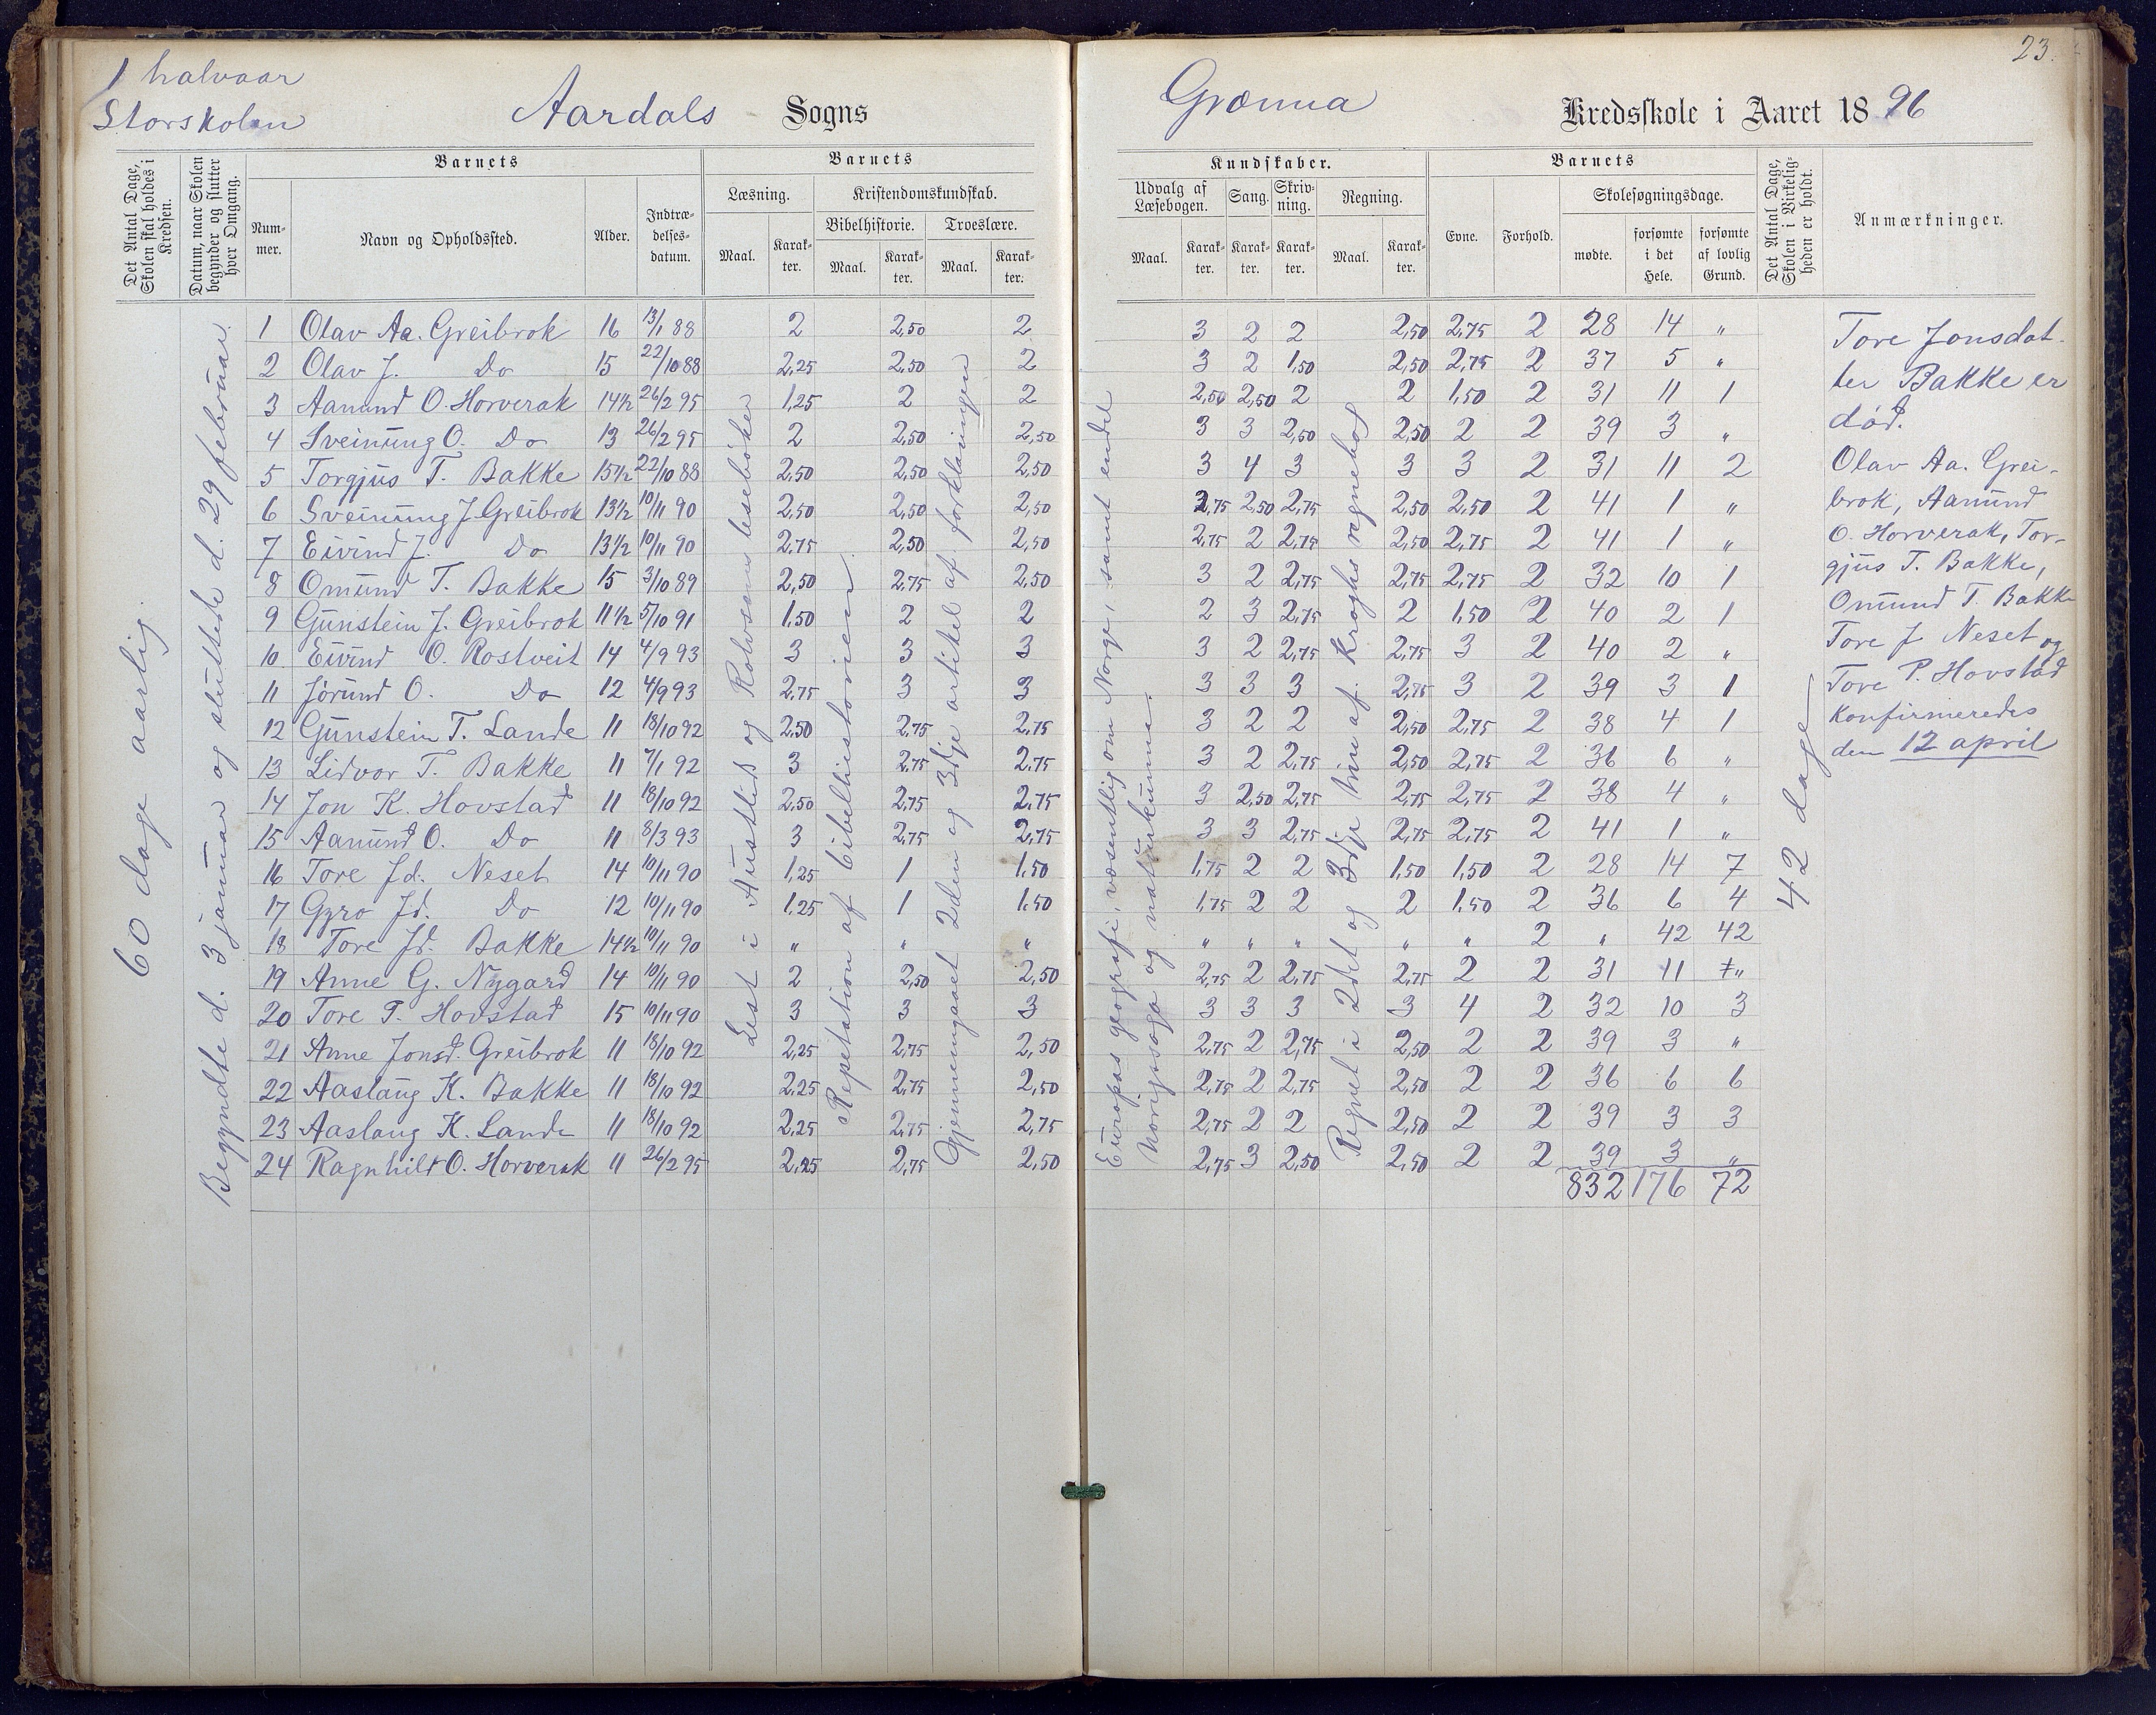 1 halvaar
Storskolen
Aardals Sogns
Det Antal Dage, Skolen skal holdes i Kredsen.
Datum, naar Skolen begynder og slutter hver Omgang.
Barnets
Nummer.
Navn og Opholdssted.
Alder.
Indtrædelsesdatum.
Barnets
Læsning.
Maal.
Karakter.
Kristendomskundskab.
Bibelhistorie.
Maal.
Karakter.
Troeslære.
Maal.
Karakter.
60 dage aarlig.
Begyndte d. 3 januar og sluttede d. 29 februar.
Lest i Austlids og Rolvsens lesebøker
Repetation af bibelhistorien.
Gjennemgaaet 2den og 3dje artikel af forklaringen
1 Olav Aa. Greibrok 16 13/1 88 2 2,50 2
2 Olav J. Do 15 22/10 88 2,25 2,50 2
3 Aanund O. Horverak 14½ 26/2 95 1,25 2 2
4 Sveinung O. Do 13 26/2 95 2 2,50 2,50
5 Torgjus T. Bakke 15½ 22/10 88 2,50 2,50 2,50
6 Sveinung J. Greibrok 13½ 10/11 90 2,50 2,50 2,50
7 Eivind J. Do 13½ 10/11 90 2,75 2,50 2,50
8 Omund T. Bakke 15 3/10 89 2,50 2,75 2,50
9 Gunstein J. Greibrok 11½ 5/10 91 1,50 2 2
10 Eivind O. Rostveit 14 4/9 93 3 3 3
11 Jørund O. Do 12 4/9 93 2,75 3 3
12 Gunstein T. Lande 11 18/10 92 2,50 2,75 2,75
13 Lidvor T. Bakke 11 7/1 92 3 2,75 2,75
14 Jon K. Hovstad 11 18/10 92 2,50 2,75 2,75
15 Aanund O. Do 11 8/3 93 3 2,75 2,75
16 Tore Jd. Neset 14 10/11 90 1,25 1 1,50
17 Gyro Jd. Do 12 10/11 90 1,25 1 1,50
18 Tore Jd. Bakke 14½ 10/11 90 " " "
19 Anne G. Nygard 14 10/11 90 2 2,50 2,50
20 Tore P. Hovstad 15 10/11 90 3 3 3
21 Anne Jonsd. Greibrok 11 18/10 92 2,25 2,75 2,50
22 Aaslaug K. Bakke 11 18/10 92 2,25 2,75 2,50
23 Aaslaug K. Lande 11 18/10 92 2,25 2,75 2,75
24 Ragnhild O. Horverak 11 26/2 95 2,25 2,75 2,50
23.
Grønna Kredsskole i Aaret 1896
Kundskaber.
Udvalg af Læsebogen.
Maal.
Karakter.
Sang.
Karakter.
Skrivning.
Karakter.
Regning.
Maal.
Karakter.
Barnets
Evne.
Forhold.
Skolesøgningsdage.
mødte.
forsømte i det Hele.
forsømte af lovlig Grund.
Det Antal Dage, Skolen i Virkeligheden er holdt.
Anmærkninger.
Europas geografi, væsentlig om Norge, samt endel
Norigssoga og naturkunna.
Regnet i 2det og 3dje trin af Kroghs regnebog
3 2 2 2,50 2,75 2 28 14 "
3 2 1,50 2,50 2,75 2 37 5 "
2,50 2,50 2 2 1,50 2 31 11 1
3 3 2,50 2,50 2 2 39 3 "
3 4 3 3 3 2 31 11 2
2,75 2,50 2,75 2,50 2,50 2 41 1 "
2,75 2 2,75 2,50 2,75 2 41 1 "
3 2 2,75 2,75 2,75 2 32 10 1
2 3 2,75 2 1,50 2 40 2 1
3 2 2,75 2,75 3 2 40 2 "
3 3 3 2,75 3 2 39 3 1
3 2 2 2,50 2,75 2 38 4 1
3 2 2,75 2,50 2,75 2 36 6 "
3 2,50 2,75 2,75 2,75 2 38 4 "
3 3 2,75 2,75 2,75 2 41 1 "
1,75 2 2 1,50 1,50 2 28 14 7
1,75 2 2 2 1,50 2 36 6 4
" " " " " 2 " 42 42
2,75 2 2,75 2,75 2 2 31 11 "
3 3 3 3 4 2 32 10 3
2,75 2 2,75 2,50 2 2 39 3 "
2,75 2 2,75 2,50 2 2 36 6 6
2,75 2 2 2,50 2 2 39 3 3
2,75 3 2,50 2,50 2 2 39 3 "
832 176 72
42 dage
Tore Jonsdat-
ter Bakke er
død.
Olav Aa. Grei-
brok, Aanund
O. Horverak, Tor-
gjus T. Bakke,
Omund T. Bakke
Tore J Neset og
Tore P. Hovstad
konfirmeredes
den 12 april